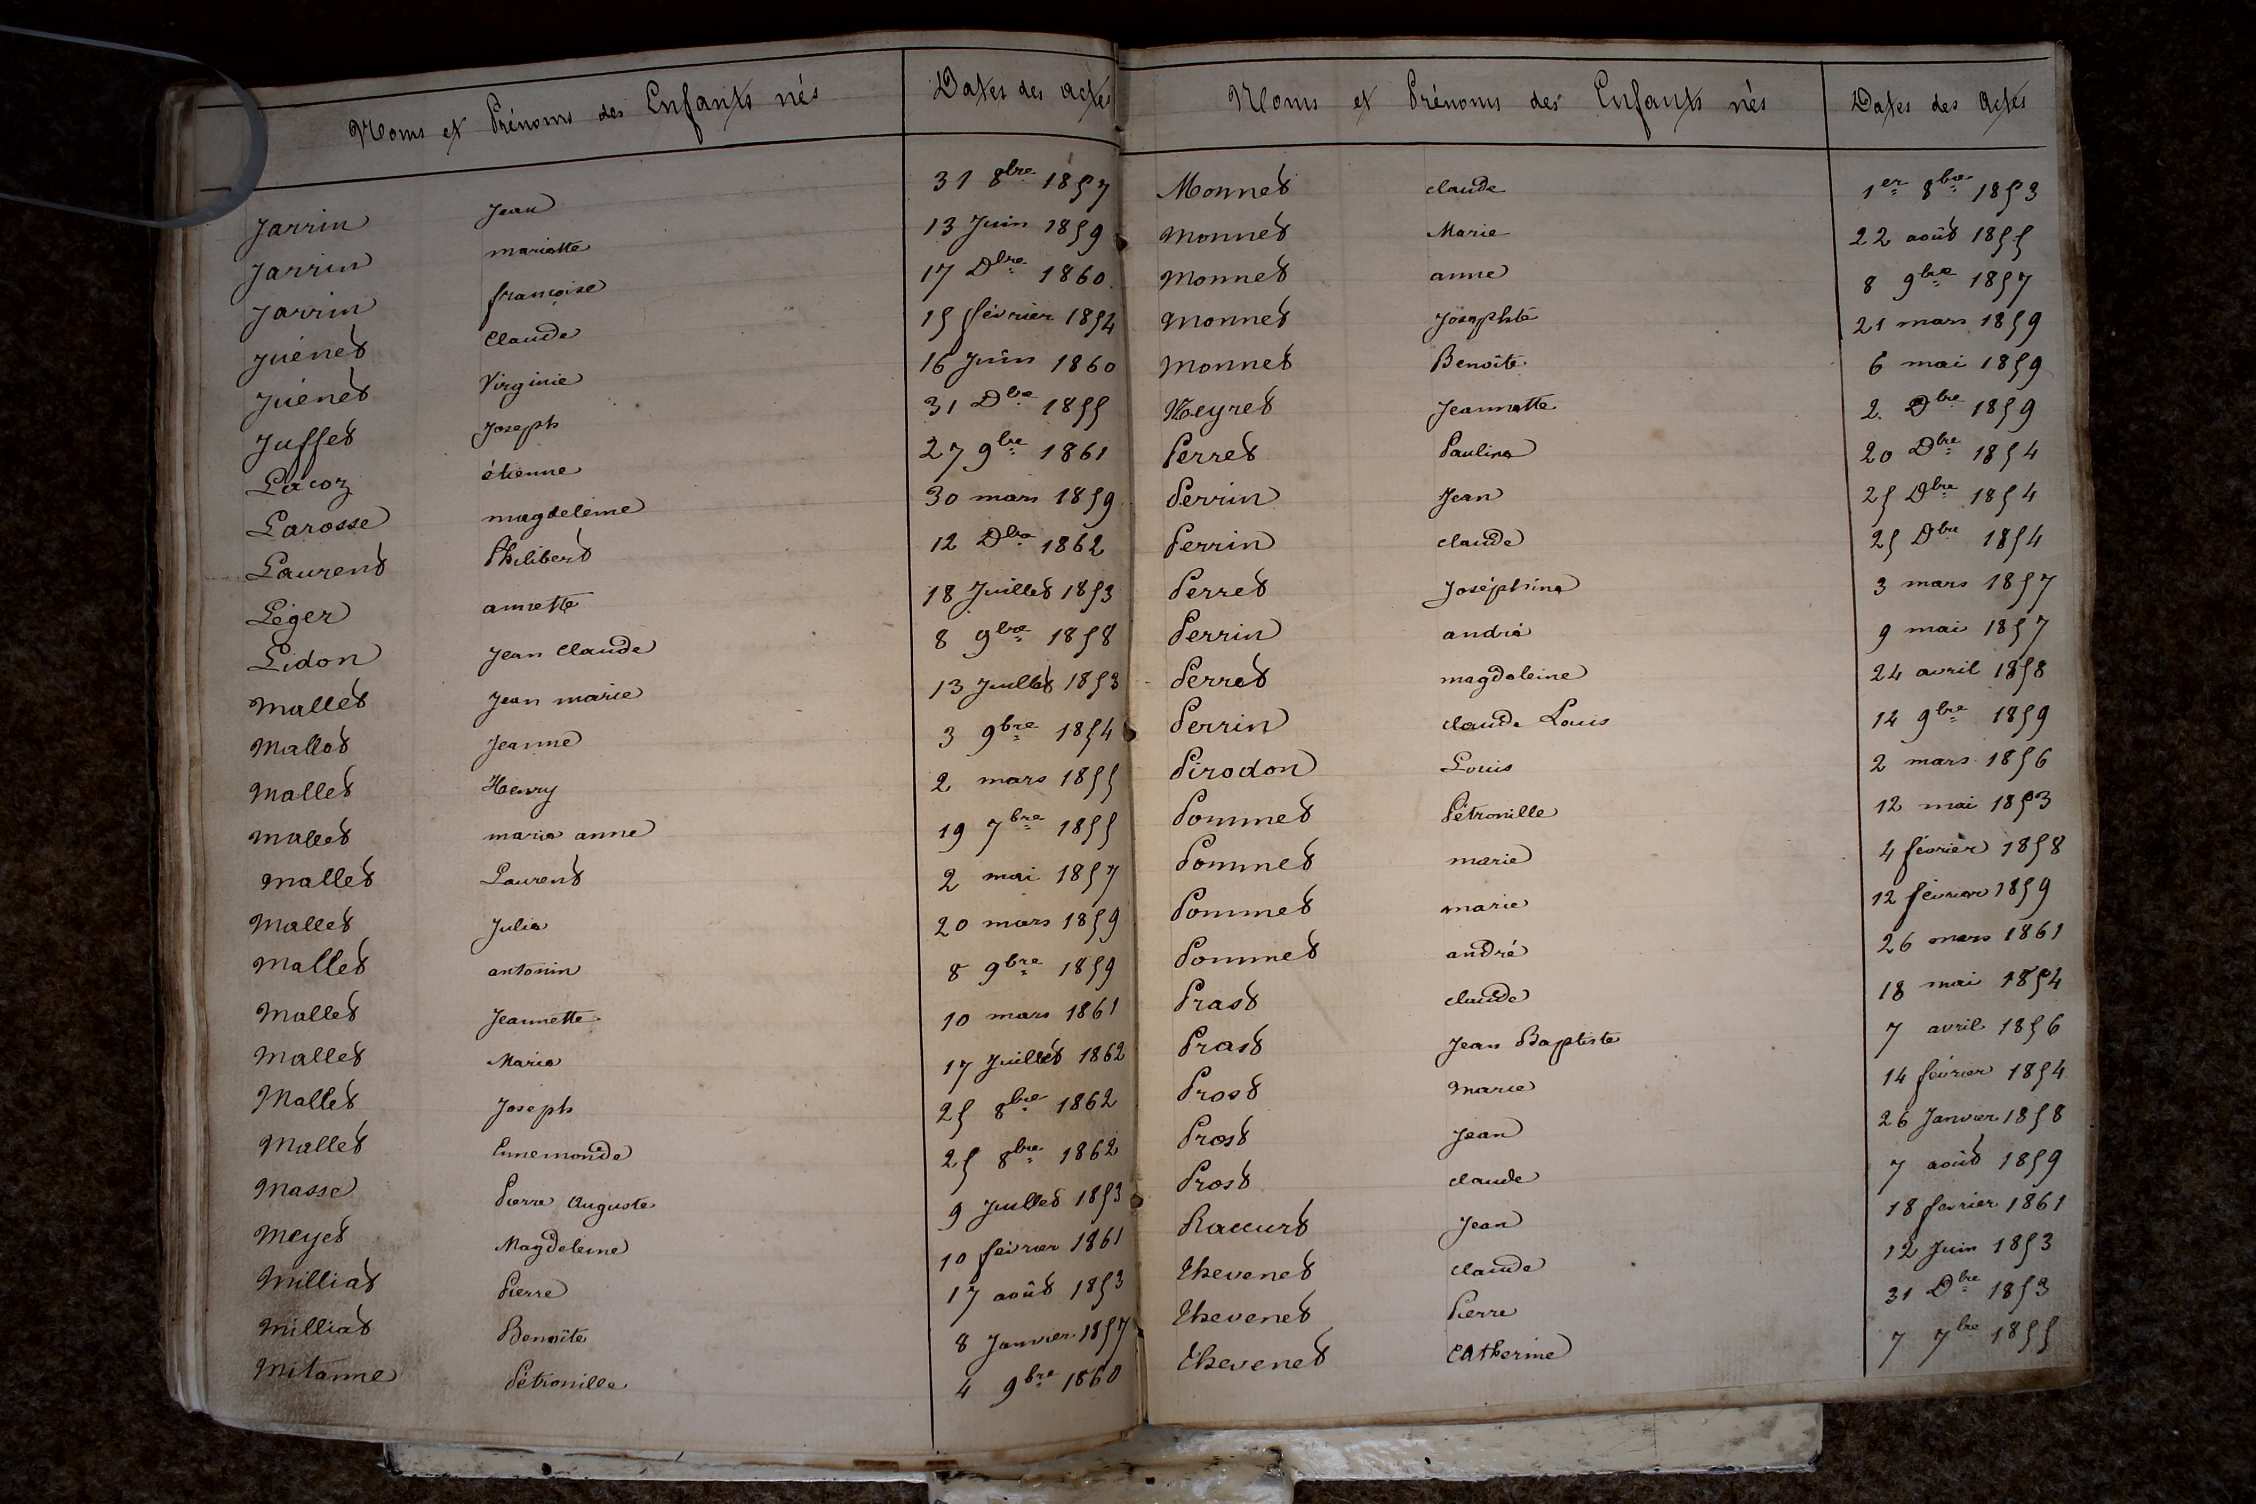 Noms et Prénoms des Enfants nés Dates des actes
Jarrin Jean 31 8bre 1857
Jarrin mariette 13 Juin 1859
Jarrin françoise 17 Dbre 1860
Juénet Claude 15 février 1854
Juénet Virginie 16 Juin 1860
Juffet Joseph 31 Dbre 1855
Lacoz étienne 27 9bre 1861
Larosse magdeleine 30 mars 1859
Laurent Philibert 12 Dbre 1862
Léger annette 18 Juillet 1853
Lidon Jean Claude 8 9bre 1858
Mallet Jean marie 13 Juillet 1853
Mallet Jeanne 3 9bre 1854
Mallet Henry 2 mars 1855
Mallet marie anne 19 7bre 1855
Mallet Laurent 2 mai 1857
Mallet Julie 20 mars 1859
Mallet antonin 8 9bre 1859
Mallet Jeannette 10 mars 1861
Mallet Marie 17 Juillet 1862
Mallet Joseph 25 8bre 1862
Mallet Ennemonde 25 8bre 1862
Masse Pierre Auguste 9 Juillet 1853
Meyet Magdeleine 10 février 1861
Milliat Pierre 17 août 1853
Milliat Benoîte 8 Janvier 1857
Mitanne Pétronille 4 9bre 1860
Noms et Prénoms des Enfants nés Dates des Actes
Monnet claude 1er 8bre 1853
Monnet Marie 22 août 1855
Monnet anne 8 9bre 1857
Monnet Josephte 21 mars 1859
Monnet Benoîte 6 mai 1859
Neyret Jeannette 2 Dbre 1859
Perret Pauline 20 Dbre 1854
Perrin Jean 25 Dbre 1854
Perrin claude 25 Dbre 1854
Perret Joséphine 3 mars 1857
Perrin andré 9 mai 1857
Perret magdeleine 24 avril 1858
Perrin claude Louis 14 9bre 1859
Pirodon Louis 2 mars 1856
Pommet Pétronille 12 mai 1853
Pommet marie 4 février 1858
Pommet marie 12 février 1859
Pommet andré 26 mars 1861
Prast claude 18 mai 1854
Prast Jean Baptiste 7 avril 1856
Prost marie 14 février 1854
Prost Jean 26 Janvier 1858
Prost claude 7 août 1859
Raccurt Jean 18 fevrier 1861
Thevenet claude 12 Juin 1853
Thevenet Pierre 31 Dbre 1853
Thevenet Catherine 7 7bre 1855